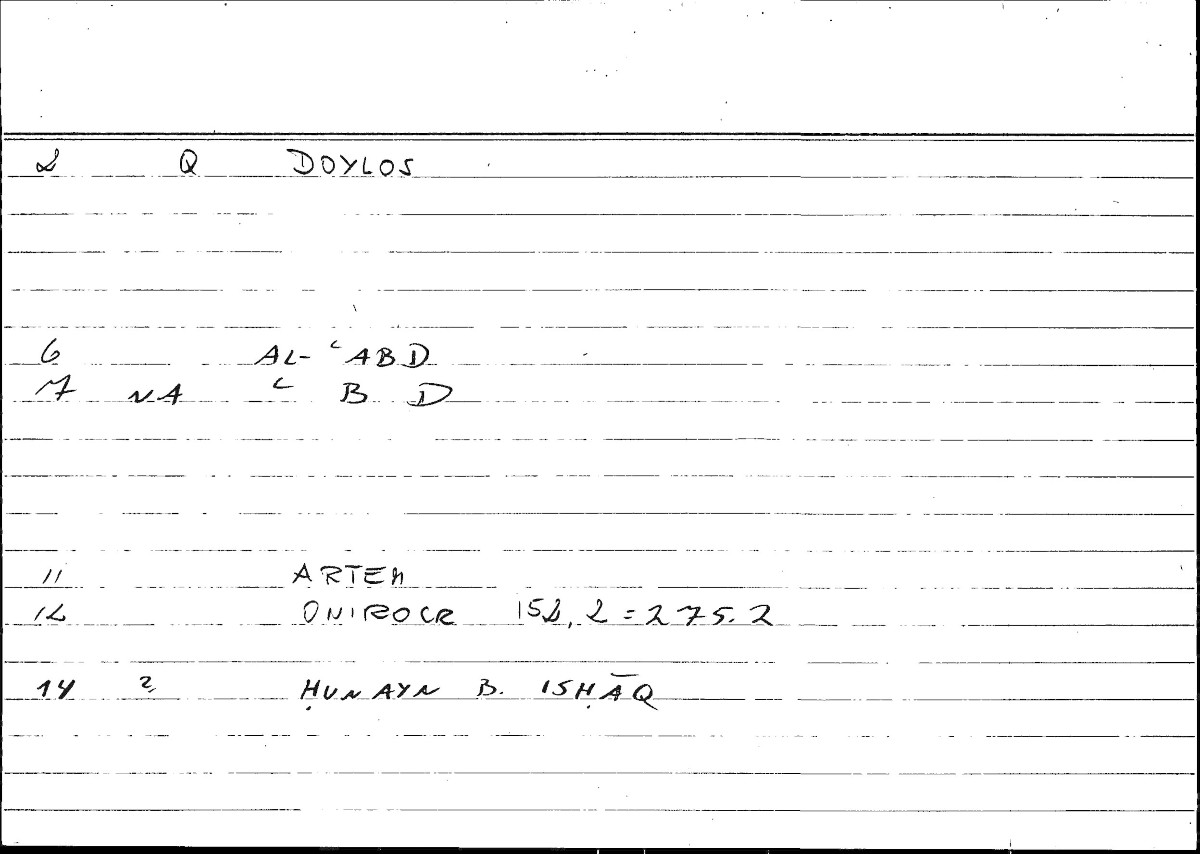 2 Q DOYLOS
6 AL- ʿABD
7 NA ʿ B D
11 ARTEM
12 ONIROCR 152, 2 = 275. 2
14 2 ḤUNAYN B. ISḤĀQ